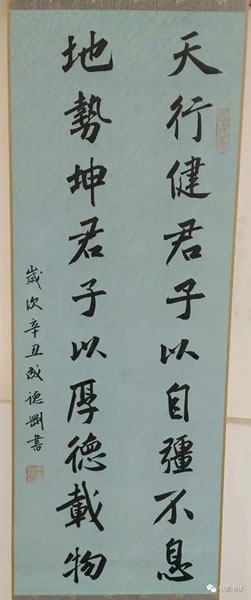 天行健君子以自彊不息
地勢坤君子以厚德載物
歲次辛丑成德剛書